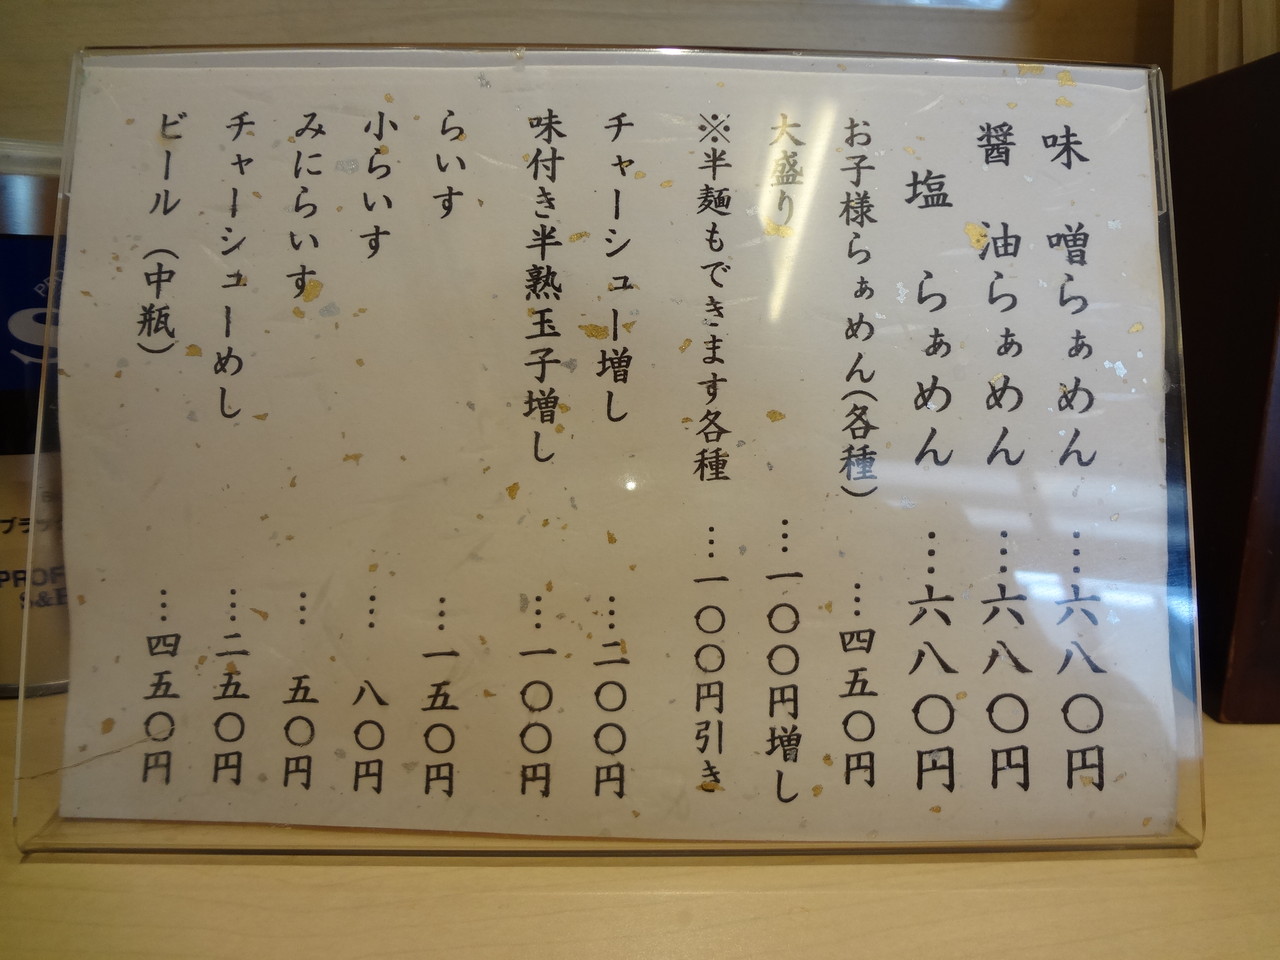 味噌らぁめん……六八〇円
醤油らぁめん……六八〇円
塩らぁめん……六八〇円
お子様らぁめん（各種）…四五〇円
大盛り…一〇〇円増し
※半麺もできます各種…一〇〇円引き
チャーシュー増し…二〇〇円
味付き半熟玉子増し…一〇〇円
らいす…一五〇円
小らいす…八〇円
みにらいす…五〇円
チャーシューめし…二五〇円
ビール（中瓶）…四五〇円